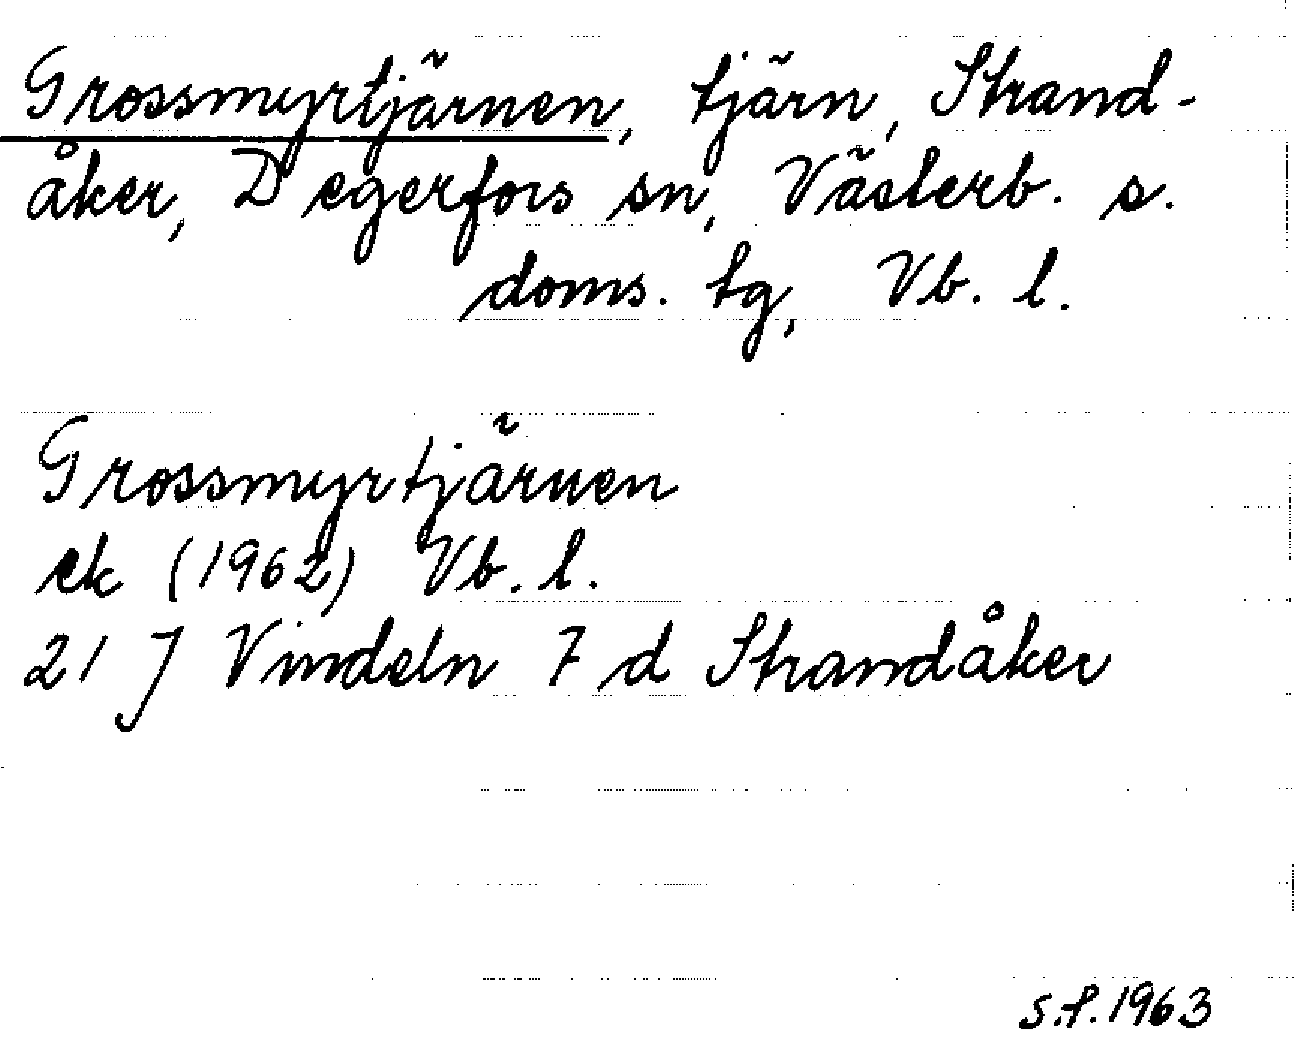 Grossmyrtjärnen, tjärn, Strand-
åker, Degerfors sn, Västerb. s.
doms. tg, Vb. l.
Grossmyrtjärnen
ek (1962) Vb. l.
21 J Vindeln 7 d Strandåker
S.f. 1963